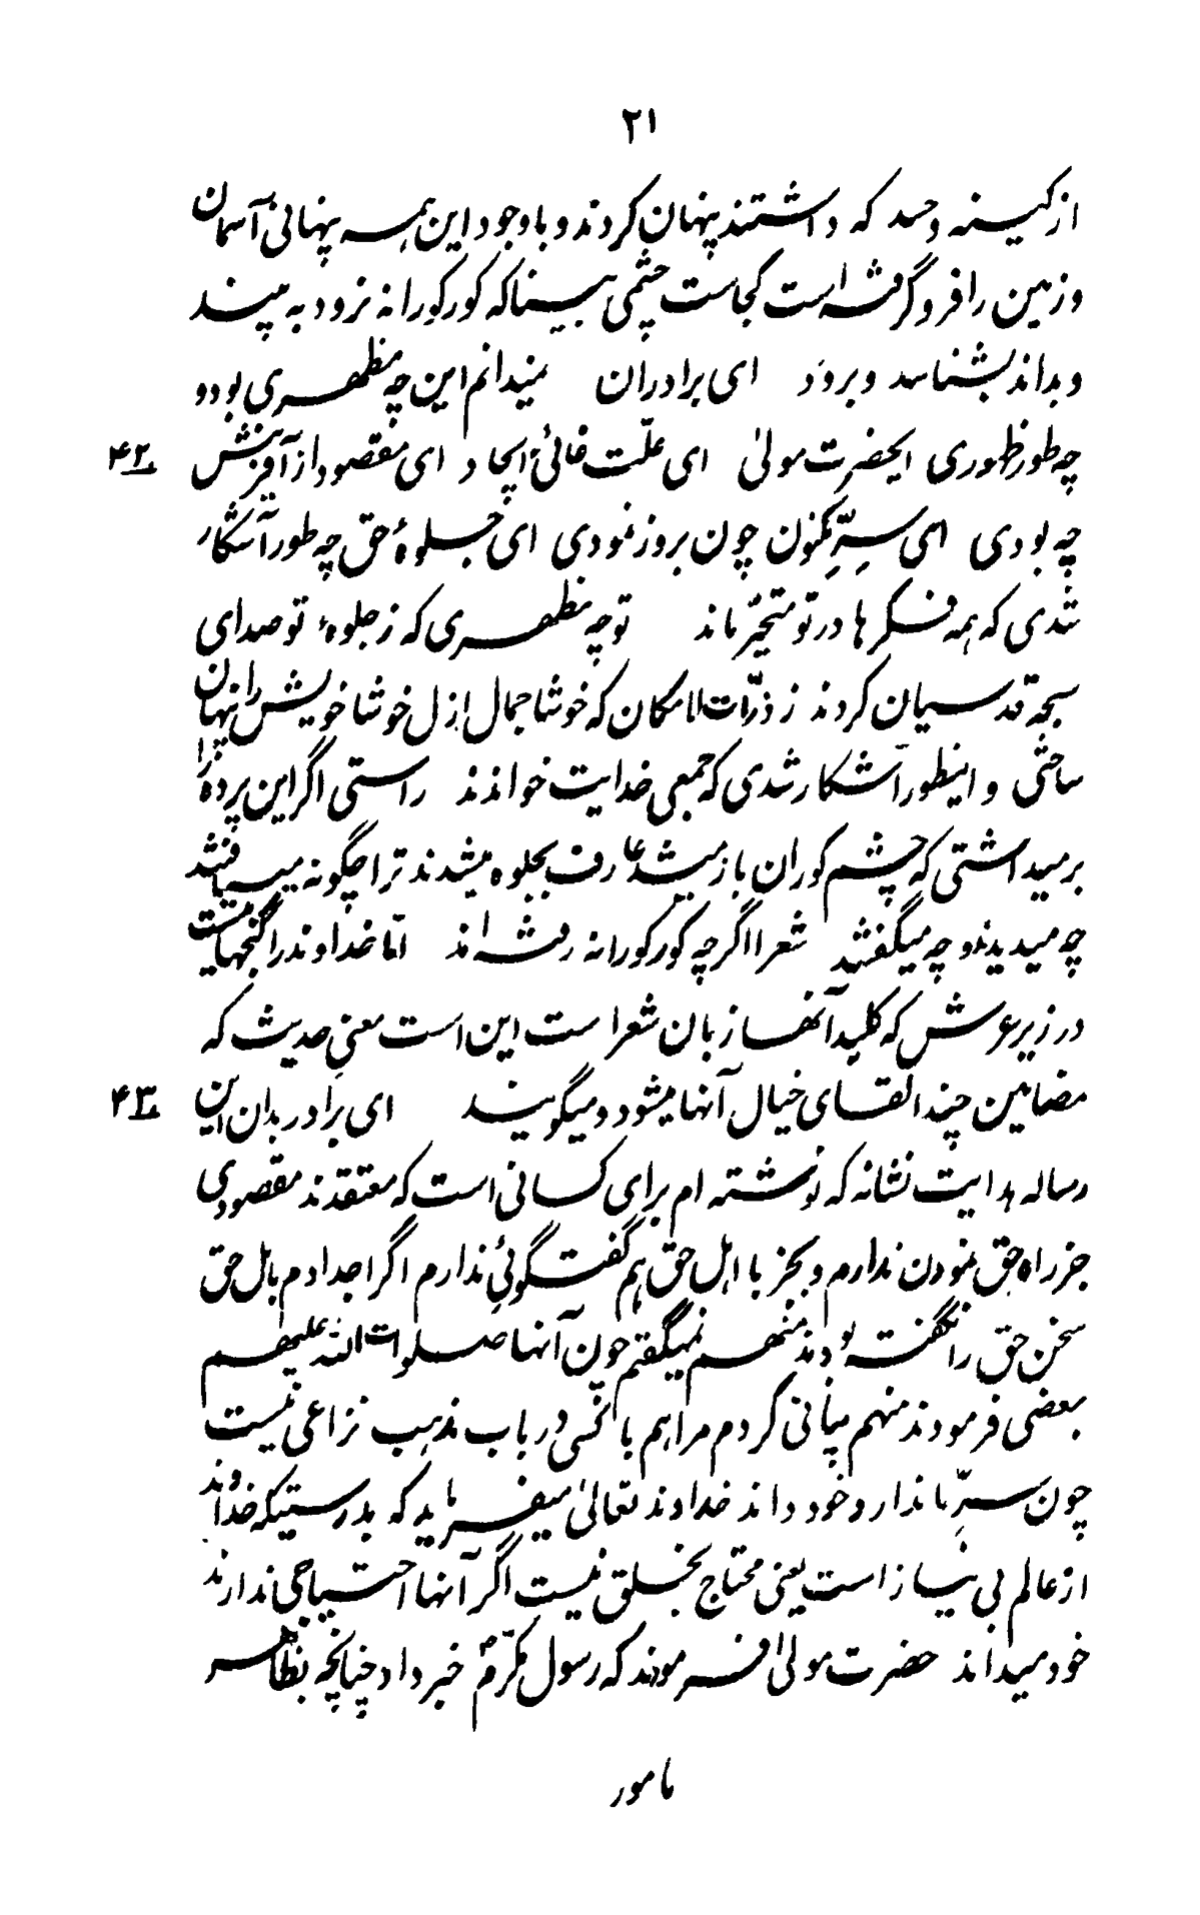 ۲۱
از کینه و حسد که داشتند پنهان کردند و با وجود این همه پنهانی آسمان
و زمین را فرو گرفته است کجاست چشمی بینا که کورکورانه نرود به بیند
و بداند بشناسد و برود ای برادران نمیدانم این چه مظهری بود و
چه طور ظهوری ایحضرت مولیٰ ای علّت غائی ایجاد ای مقصود از آفرینش ۴۲
چه بودی ای سرِّ مکنون چون بروز نمودی ای جلوهٔ حق چه طور آشکار
شدی که همه فکرها در تو متحیّر ماند تو چه مظهری که ز جلوهٔ تو صدای
سبحه قدسیان کردند ز ذرّات لامکان که خوشا جمال ازل خوشا خویش را پنهان
ساختی و اینطور آشکار شدی که جمعی خدایت خواندند راستی اگر این پرده را
برمیداشتی که چشم کوران باز میشد عارف بجلوه میشدند ترا چگونه مییافتند
چه میدیدند و چه میگفتند شعرا اگرچه کورکورانه رفته‌اند امّا خداوند را گنجهایست
در زیر عرش که کلید آنها زبان شعراست این است معنیِ حدیث که
مضامین چند القای خیال آنها میشود و میگویند ای برادر بدان این ۴۳
رساله هدایت نشانه که نوشته ام برای کسانی است که معتقدند مقصودی
جز راه حق نمودن ندارم و بجز با اهل حق هم گفتگوئی ندارم اگر اجدادم باهل حق
سخن حق را نگفته بودند منهم نمیگفتم چون آنها صلوات الله علیهم
بعضی فرمودند منهم بیانی کردم مرا هم با کسی در باب مذهب نزاعی نیست
چون سرِّ ما ندارد خود داند خداوند تعالیٰ میفرماید که بدرستیکه خداوند
از عالم بی نیاز است یعنی محتاج بخلق نیست اگر آنها احتیاجی ندارند
خود میدانند حضرت مولیٰ فرمودند که رسول مکرّم خبر داد چنانچه بظاهر
مامور